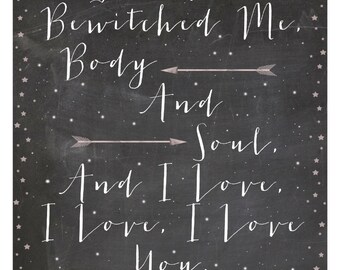 Bewitched Me,
Body
And
Soul,
And I Love,
I Love, I Love
You.